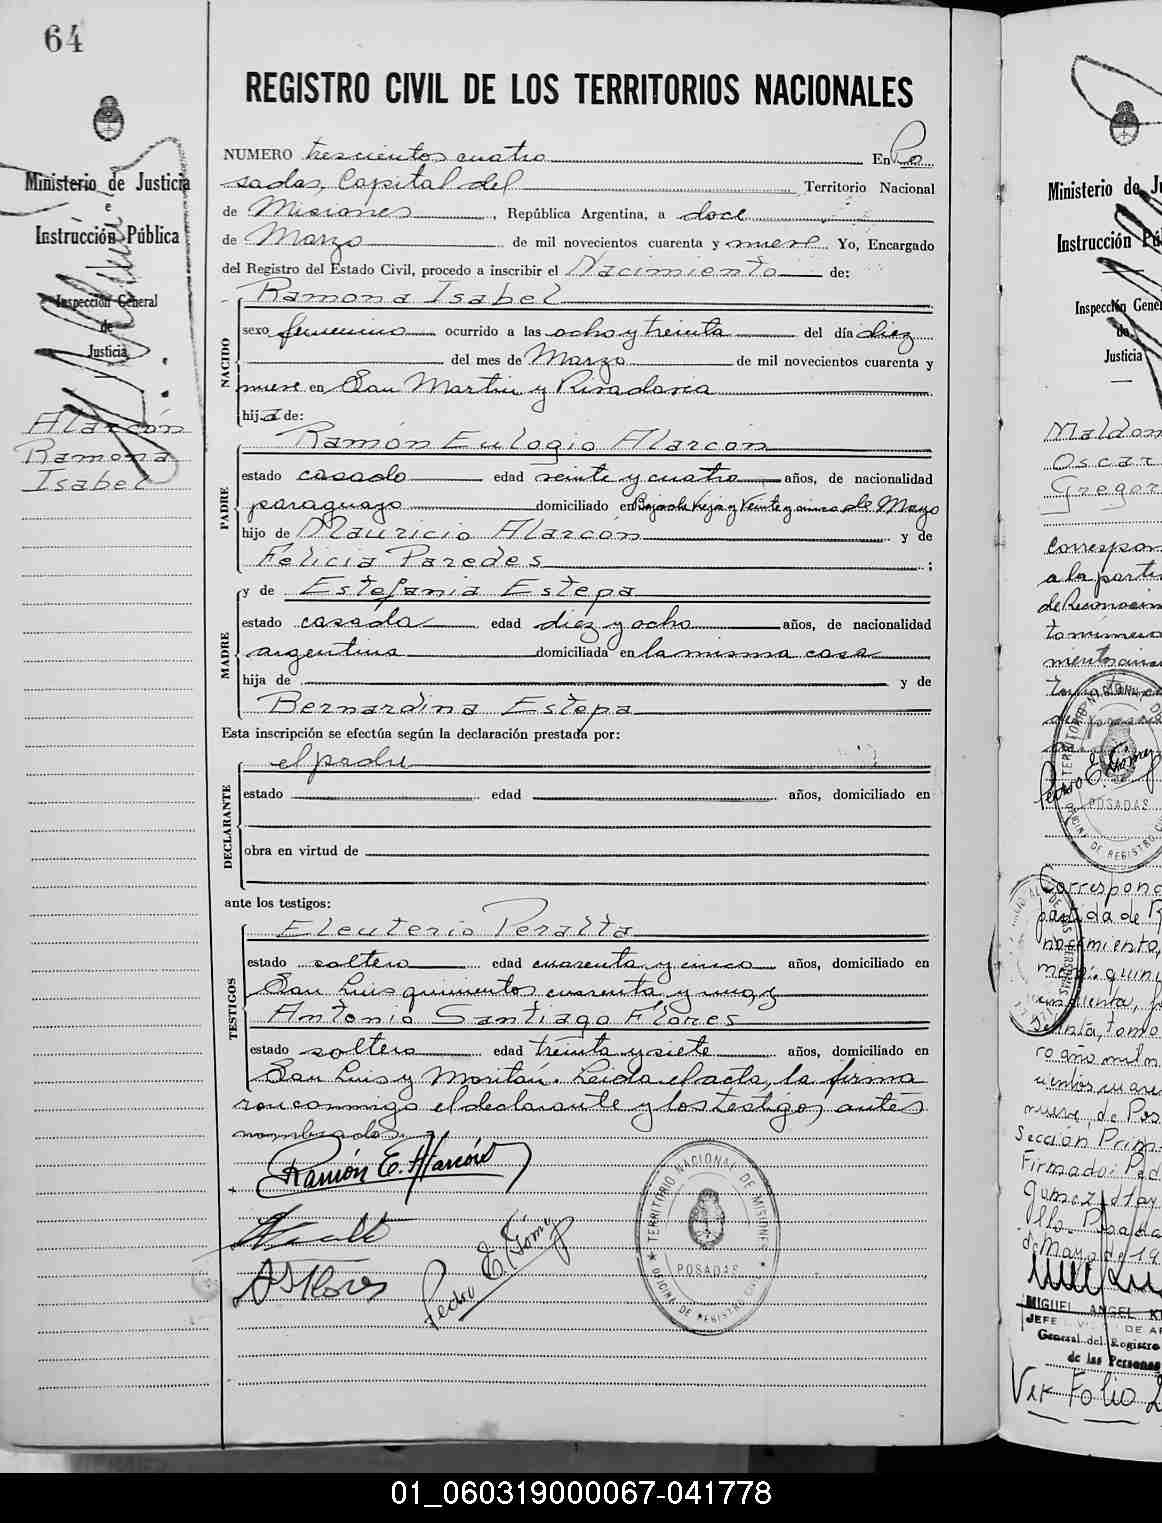 64
REGISTRO CIVIL DE LOS TERRITORIOS NACIONALES
Ministerio de Justicia
e
Instrucción Pública
Inspección General
de
Justicia
Alarcón
Ramona
Isabel
NUMERO trescientos cuatro En Po
sadas, Capital del Territorio Nacional
de Misiones, República Argentina, a doce
de Marzo de mil novecientos cuarenta y nueve Yo, Encargado
del Registro del Estado Civil, procedo a inscribir el Nacimiento de:
NACIDO
Ramona Isabel
sexo femenino ocurrido a las ocho y treinta del día diez
del mes de Marzo de mil novecientos cuarenta y
nueve en San Martin y Rivadavia
hija de:
PADRE
Ramón Eulogio Alarcón
estado casado edad veinte y cuatro años, de nacionalidad
paraguayo domiciliado en Bajada Vieja y Veinte y cinco de Mayo
hijo de Mauricio Alarcón y de
Felicia Paredes ;
MADRE
y de Estefania Estepa
estado casada edad diez y ocho años, de nacionalidad
argentina domiciliada en la misma casa
hija de y de
Bernardina Estepa
Esta inscripción se efectúa según la declaración prestada por:
DECLARANTE
el padre
estado edad años, domiciliado en
obra en virtud de
ante los testigos:
TESTIGOS
Eleuterio Peralta
estado soltero edad cuarenta y cinco años, domiciliado en
San Luis quinientos cuarenta y uno y
Antonio Santiago Flores
estado soltero edad treinta y siete años, domiciliado en
San Luis y Moritán. Leida el acta, la firma
ron conmigo el declarante y los testigos antes
nombrados.
Ramón E. Alarcón
A S Flores
Pedro E. Gómez
TERRITORIO NACIONAL DE MISIONES
POSADAS
OFICINA DE REGISTRO CIVIL
Ministerio de Ju
Instrucción Pú
Inspección Gener
de
Justicia
Maldon
Oscar
Gregor
Correspon
a la parti
de Reconocim
TERRITORIO NACIONAL DE
Pedro E. Gómez
POSADAS
OFICINA DE REGISTRO CI
Corresponde
partida de R
nocimiento,
ro año mil n
nueve, de Pos
Sección Prim
Firmado: Ped
Posada
de Mayo de 19
MIGUEL ANGEL K
JEFE
DE AR
General del Registro
de las Personas
Ver Folio 2
01_060319000067-041778